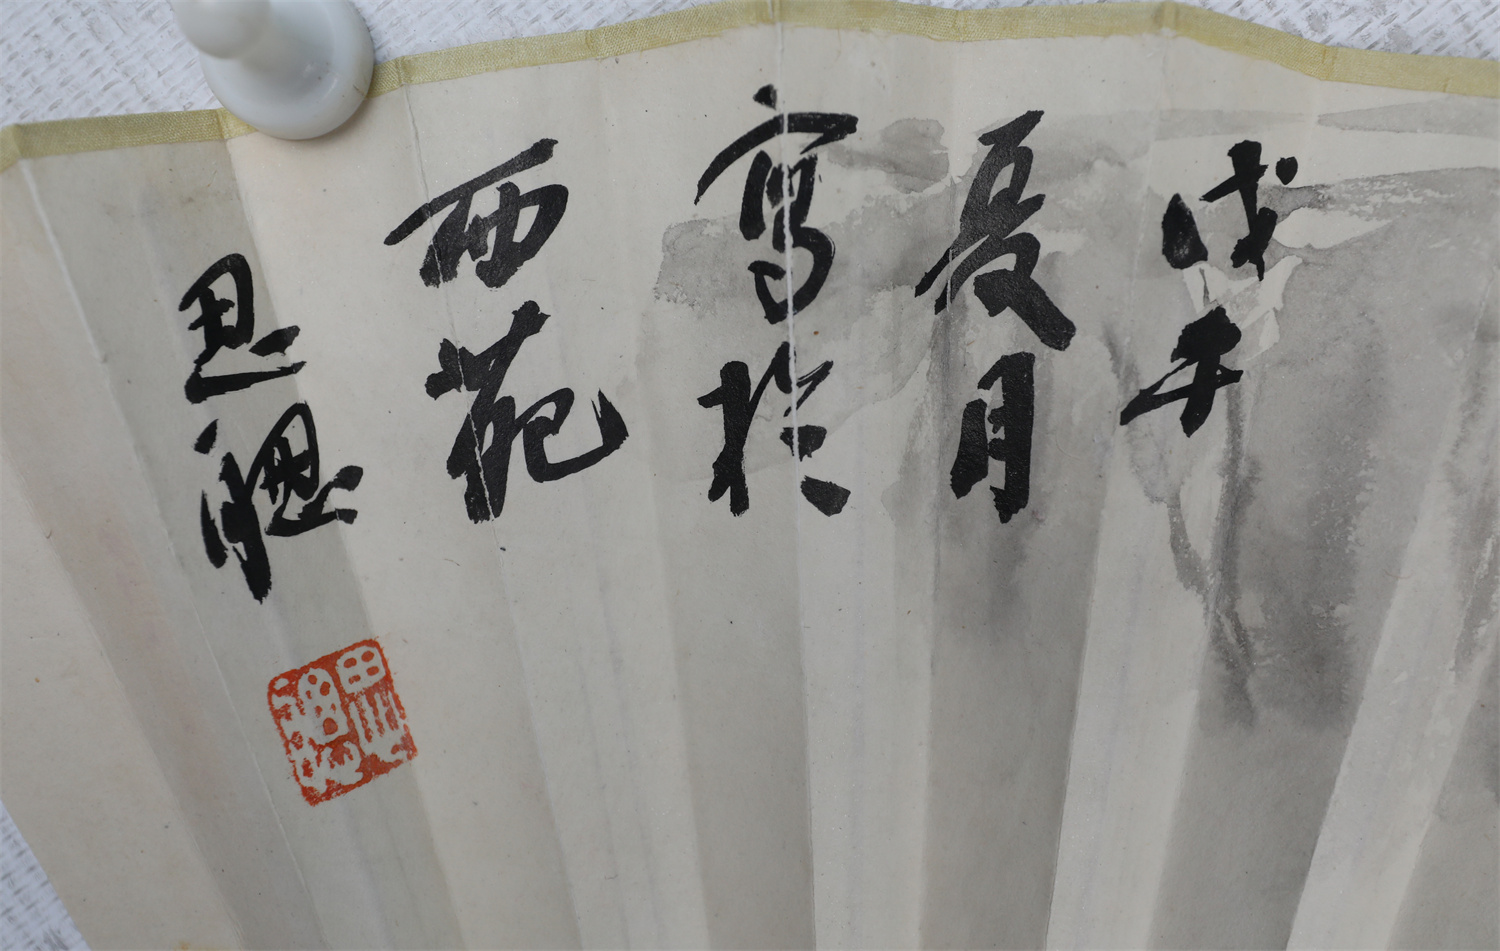 戊午
夏月
寫於
西苑
思聰
思聰